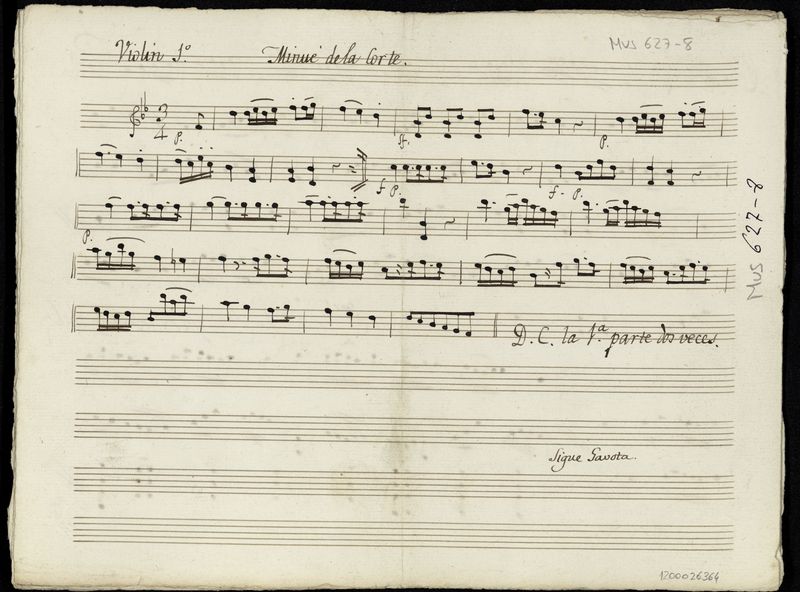 Violin 1º. Minué de la Corte.
MUS 627-8
3/4
p. ff. p.
f p. f. p.
P.
D. C. la 1.ª parte dos veces.
Sigue Gavota.
MUS 627-8
1200026364